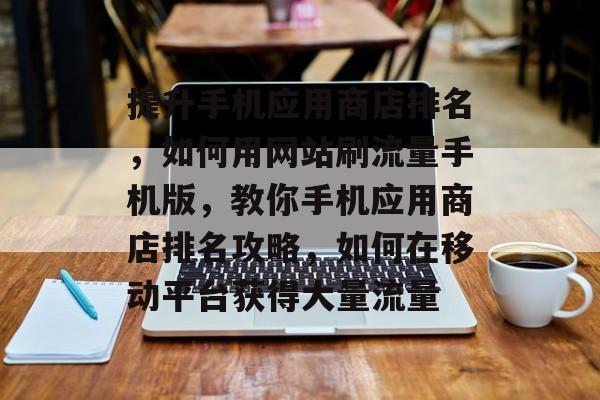 提升手机应用商店排名
，如何用网站刷流量手
机版，教你手机应用商
店排名攻略，如何在移
动平台获得大量流量